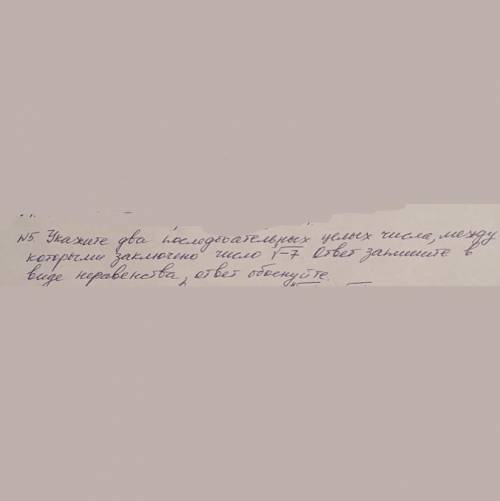 №5. Укажите два последовательных целых числа, между
которыми заключено число √-7 Ответ запишите в
виде неравенства, ответ обоснуйте.